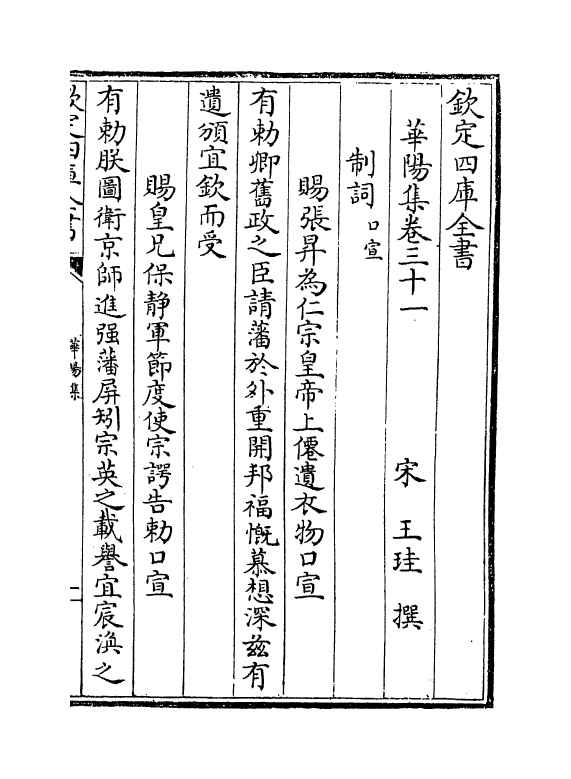 欽定四庫全書
華陽集卷三十一　　　宋　王珪　撰
制詞口宣
賜張昇為仁宗皇帝上僊遺衣物口宣
有勅卿舊政之臣請藩於外重開邦福慨慕想深兹有
遺頒宜欽而受
賜皇兄保静軍節度使宗諤告勅口宣
有勅朕圖衛京師進强藩屏矧宗英之載譽宜宸渙之
欽定四庫全書
華陽集
一